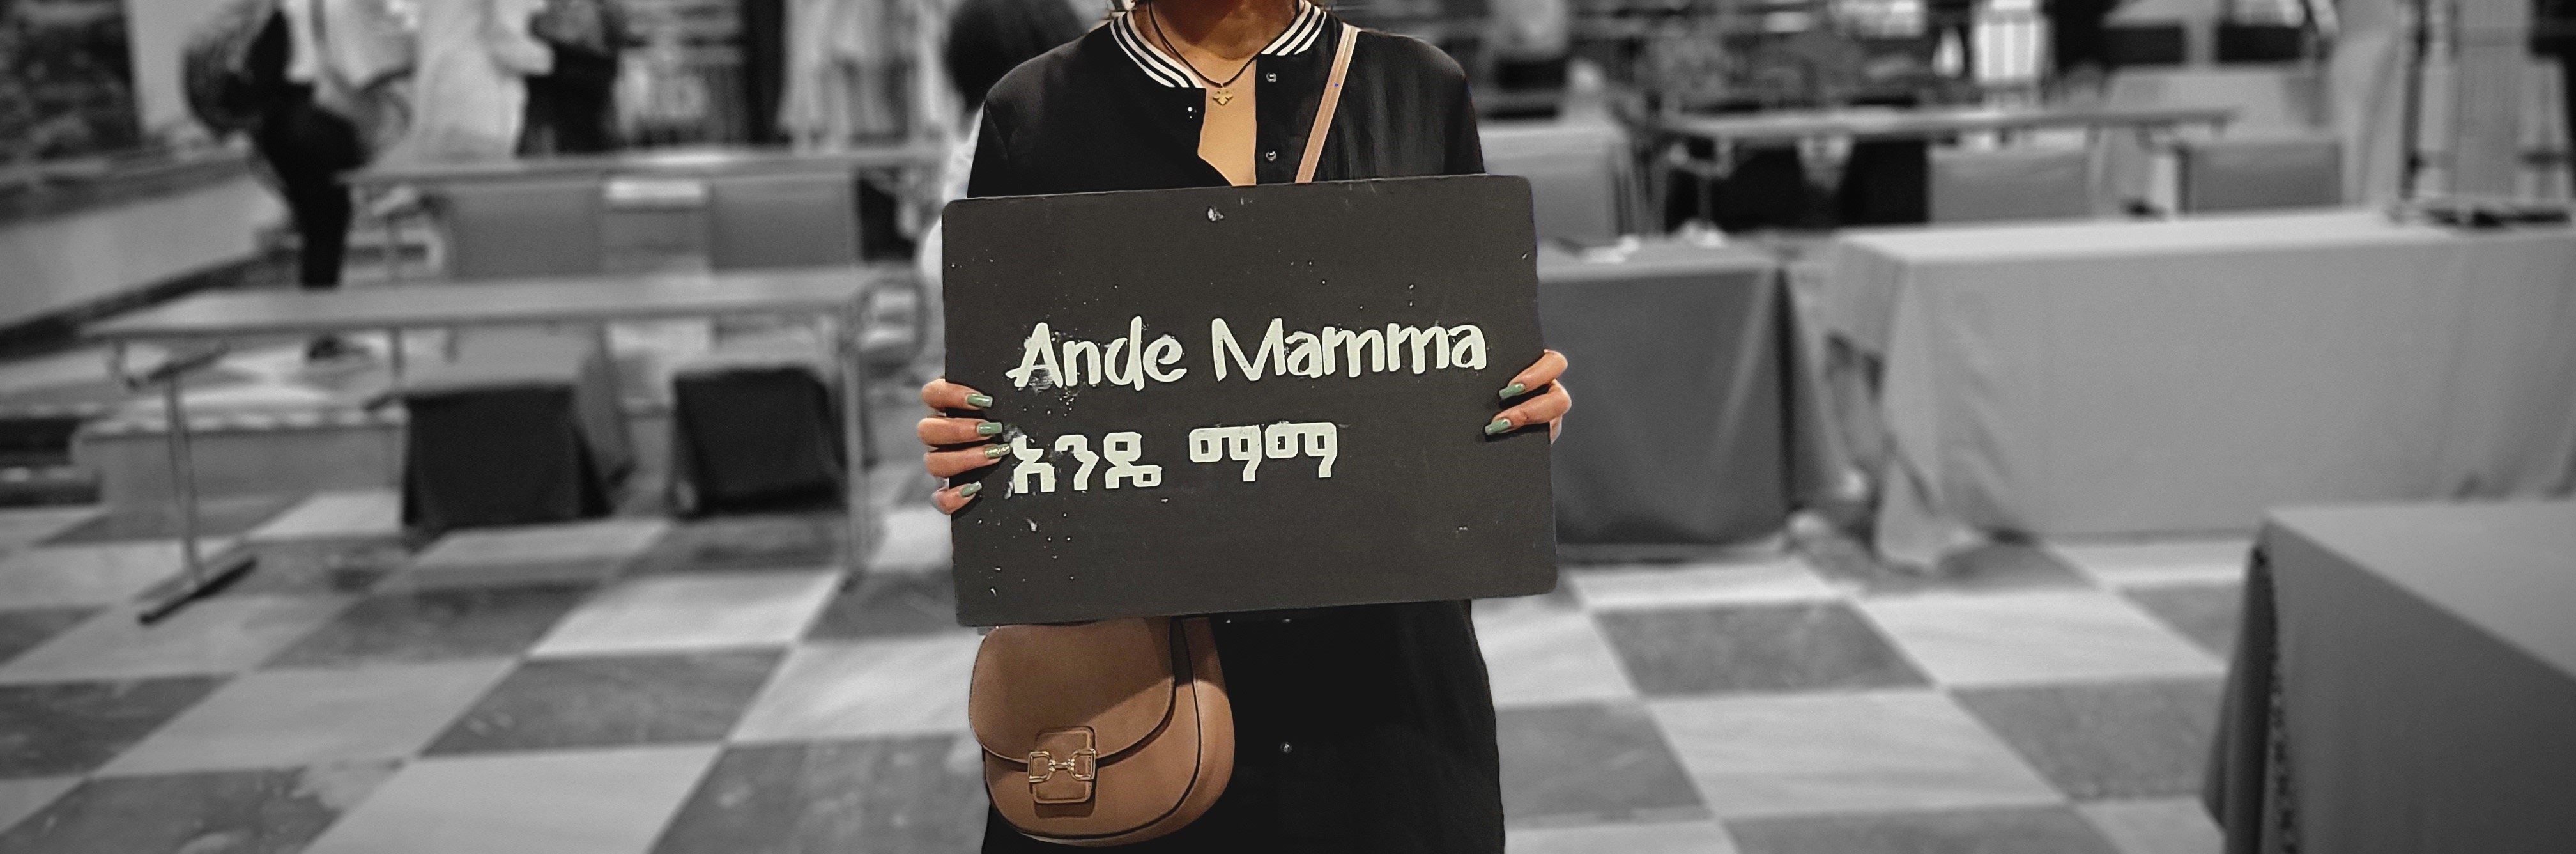 Ande Mamma
አንዴ ማማ